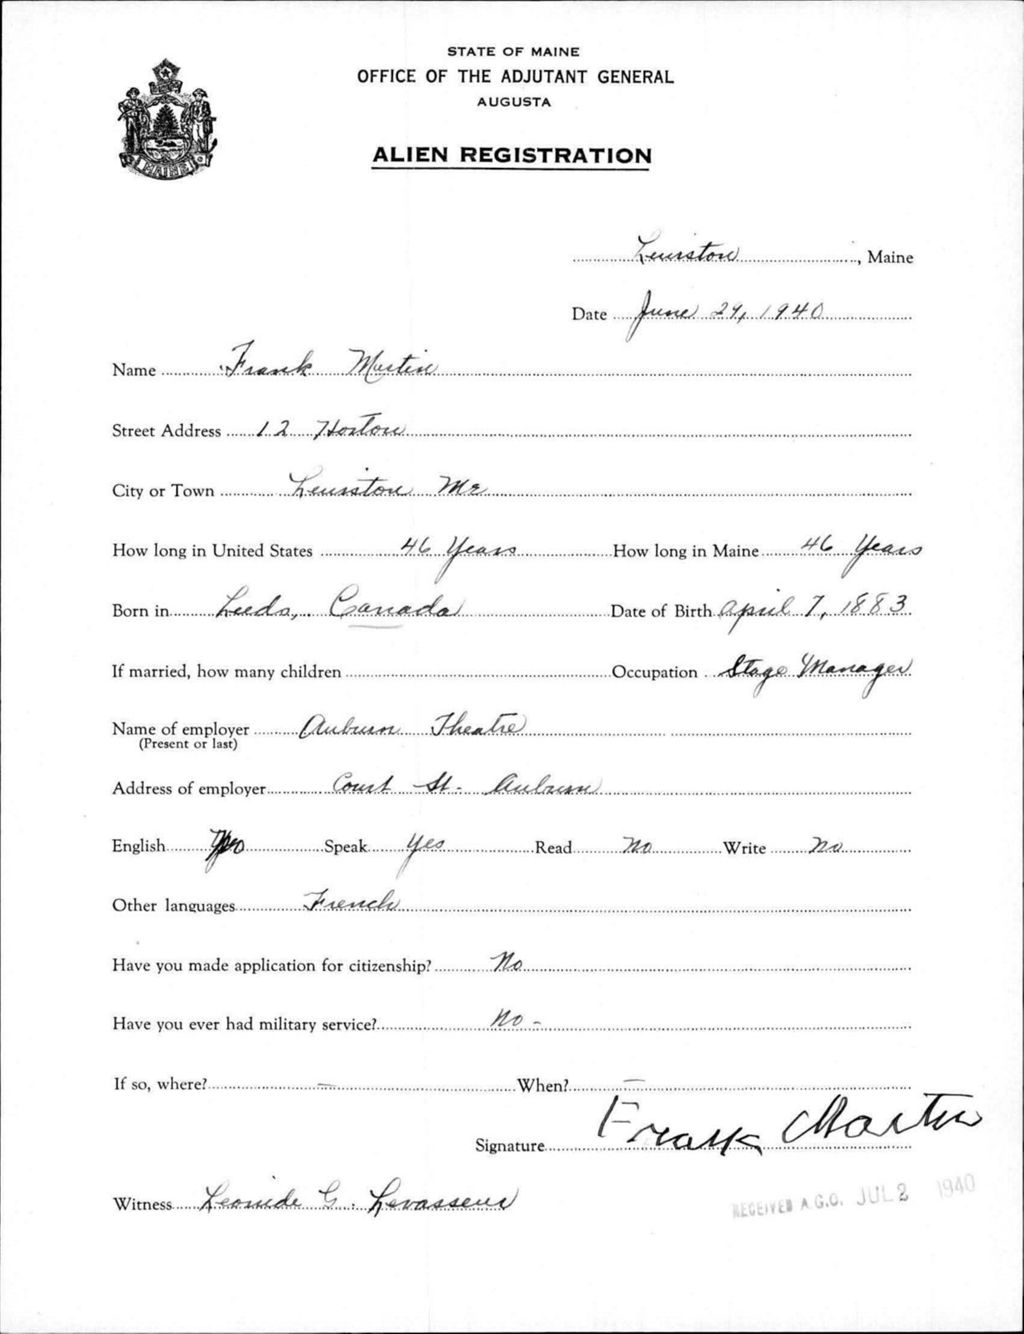 STATE OF MAINE
OFFICE OF THE ADJUTANT GENERAL
AUGUSTA
MAINE
ALIEN REGISTRATION
Lewiston, Maine
Date June 29, 1940
Name Frank Martin
Street Address 12 Horton
City or Town Lewiston Me
How long in United States 46 Years How long in Maine 46 Years
Born in Leeds, Canada Date of Birth April 7, 1883
If married, how many children Occupation Stage Manager
Name of employer Auburn Theatre
(Present or last)
Address of employer Court St. Auburn
English No Speak Yes Read No Write No
Other languages French
Have you made application for citizenship? No
Have you ever had military service? No -
If so, where? — When? —
Signature Frank Martin
Witness Leonide G. Levasseur
RECEIVED A.G.O. JUL 2 1940